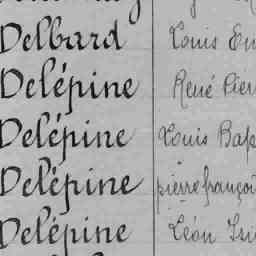 Delbard Louis
Delépine René
Delépine Louis
Delépine pierre françois
Delépine Léon